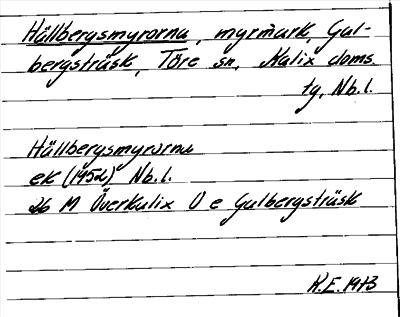 Hällbergsmyrorna, myrmark, Gul-
bergsträsk, Töre sn, Kalix doms.
tg, Nb.l.
Hällbergsmyrorna
ek (1952) Nb.l.
26 M Överkalix O e Gulbergsträsk
K.E. 1973